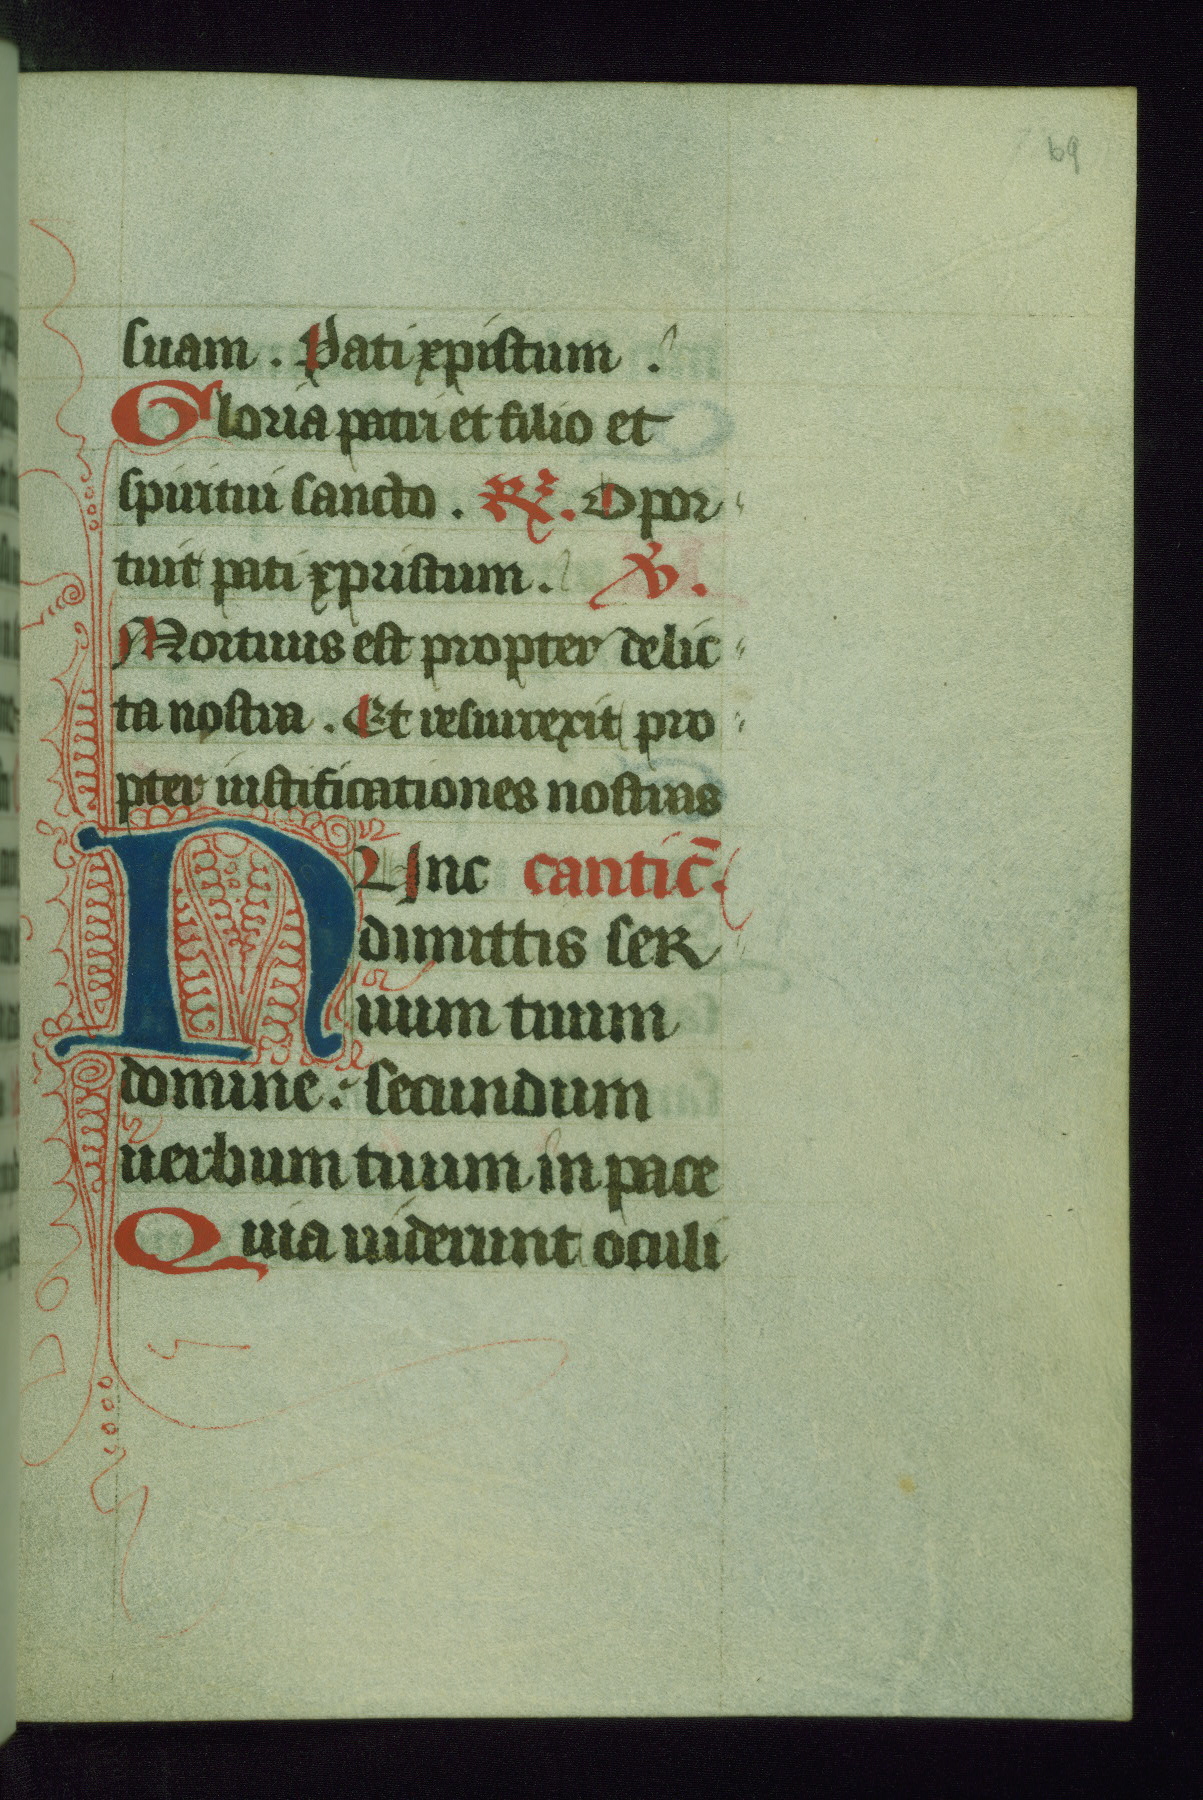 69
suam . Pati xpistum .
Gloria patri et filio et
spiritui sancto . R̃. Opor
tuit pati xpristum . V̉.
Mortuus est propter delic
ta nostra . Et resurrexit pro
pter iustificationes nostras
NUnc cantic̄.
dimittis ser
uum tuum
domine : secundum
uerbum tuum in pace
Quia uiderunt oculi